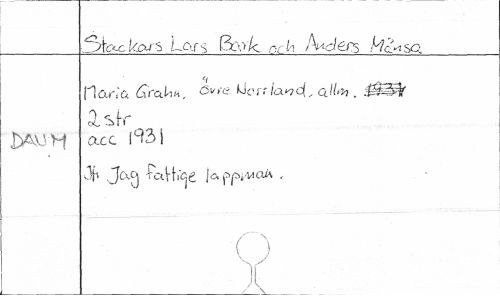 Stackars Lars Bark och Anders Månsa
Maria Grahn. Övre Norrland, allm. 1931
2 str
DAUM acc 1931
Jfr Jag fattige lappman.